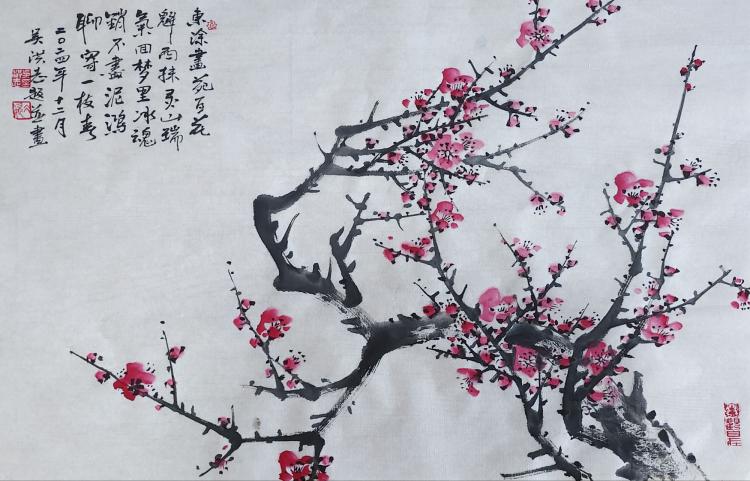 東涂畫苑百花
魁西抹灵山瑞
氣回梦里冰魂
銷不盡泥鴻
聊寄一枝春
二〇二四年十二月
吴洪志並畫